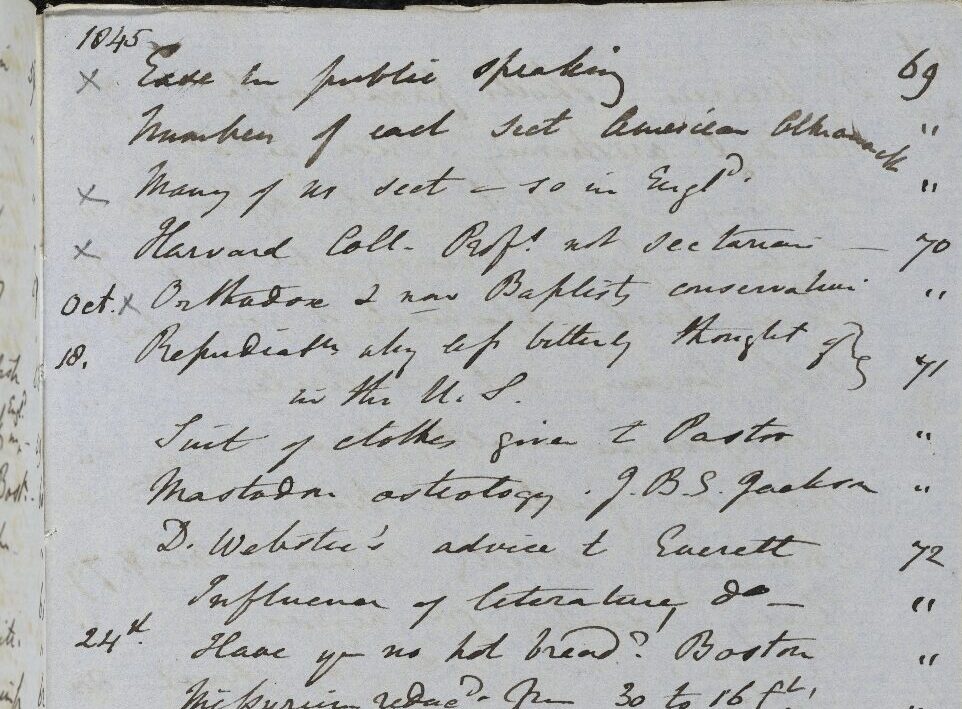 1845
× Ease in public speaking 69
Numbers of each sect American Almanack "
× Many of no sect – so in Engl^d. "
× Harvard Coll. Prof^s. not sectarian — 70
Oct. × Orthodox & now Baptists conservative "
18. Repudiation why less bitterly thought of 71
in the U. S.
Suit of clothes given to Pastor "
Mastodon osteology. J.B.S. Jackson "
D. Webster's advice to Everett 72
Influence of literature, d^o — "
24^th. Have you no hot bread? Boston "
reduc^d. from 30 to 16 f^t.